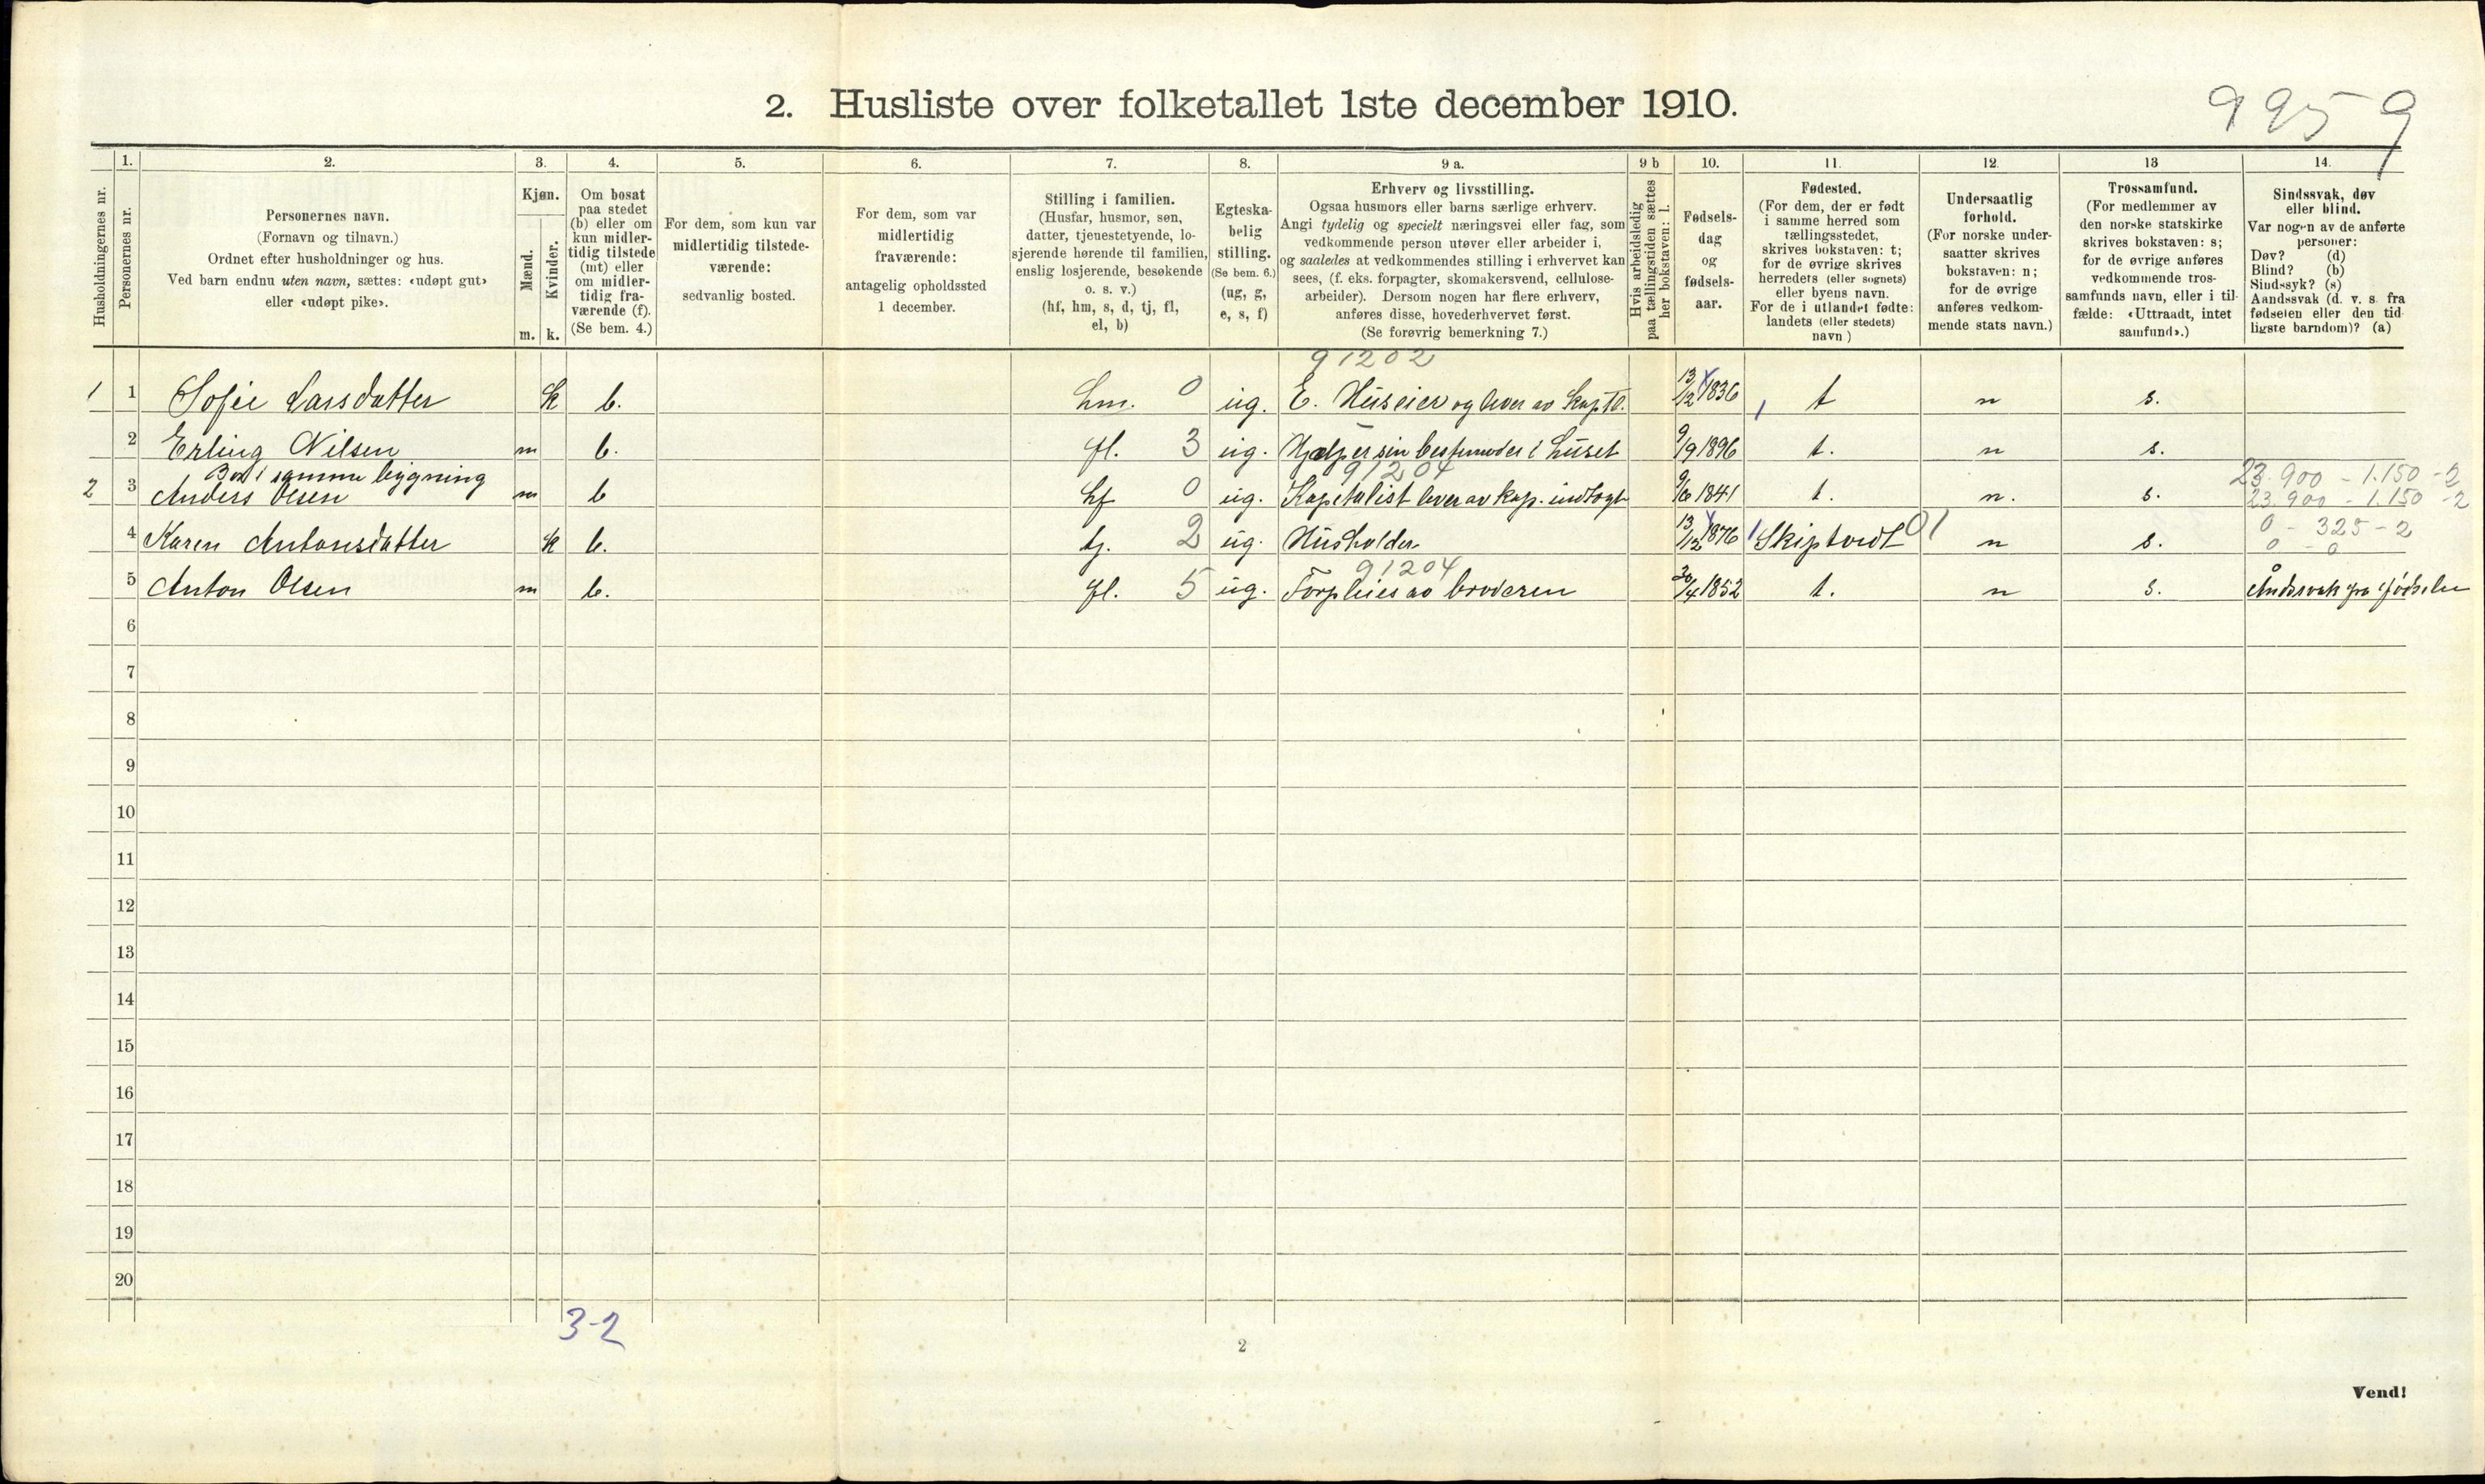 2. Husliste over folketallet 1ste december 1910.
9959
Husholdningernes nr.
1.
Personernes nr.
2.
Personernes navn.
(Fornavn og tilnavn.)
Ordnet efter husholdninger og hus.
Ved barn endnu uten navn, sættes: «udøpt gut»
eller «udøpt pike».
3.
Kjøn.
Mænd.
Kvinder.
m. k.
4.
Om bosat
paa stedet
(b) eller om
kun midler-
tidig tilstede
(mt) eller
om midler-
tidig fra-
værende (f).
(Se bem. 4.)
5.
For dem, som kun var
midlertidig tilstede-
værende:
sedvanlig bosted.
6.
For dem, som var
midlertidig
fraværende:
antagelig opholdssted
1 december.
7.
Stilling i familien.
(Husfar, husmor, søn,
datter, tjenestetyende, lo-
sjerende hørende til familien,
enslig losjerende, besøkende
o. s. v.)
(hf, hm, s, d, tj, fl,
el, b)
8.
Egteska-
belig
stilling.
(Se bem. 6.)
(ug, g,
e, s, f)
9 a.
Erhverv og livsstilling.
Ogsaa husmors eller barns særlige erhverv.
Angi tydelig og specielt næringsvei eller fag, som
vedkommende person utøver eller arbeider i,
og saaledes at vedkommendes stilling i erhvervet kan
sees, (f. eks. forpagter, skomakersvend, cellulose-
arbeider). Dersom nogen har flere erhverv,
anføres disse, hovederhvervet først.
(Se forøvrig bemerkning 7.)
9 b
Hvis arbeidsledig
paa tællingstiden sættes
her bokstaven: l.
10.
Fødsels-
dag
og
fødsels-
aar.
11.
Fødested.
(For dem, der er født
i samme herred som
tællingsstedet,
skrives bokstaven: t;
for de øvrige skrives
herredets (eller sognets)
eller byens navn.
For de i utlandet fødte:
landets (eller stedets)
navn.)
12.
Undersaatlig
forhold.
(For norske under-
saatter skrives
bokstaven: n;
for de øvrige
anføres vedkom-
mende stats navn.)
13
Trossamfund.
(For medlemmer av
den norske statskirke
skrives bokstaven: s;
for de øvrige anføres
vedkommende tros-
samfunds navn, eller i til-
fælde: «Uttraadt, intet
samfund».)
14.
Sindssvak, døv
eller blind.
Var nogen av de anførte
personer:
Døv? (d)
Blind? (b)
Sindssyk? (s)
Aandssvak (d. v. s. fra
fødselen eller den tid-
ligste barndom)? (a)
91202
1 1 Sofie Larsdatter k b. hm. 0 ug. E. Huseier og lever av Kapt. 13/12 1836 t n s.
2 Erling Nilsen m b. fl. 3 ug. Hjælper sin bestemoder i huset 9/9 1896 t. n s.
Bor i samme bygning 91204 23.900 - 1.150 - 2
2 3 Anders Olsen m b hf 0 ug. Kapetalist lever av kap. indtægt 1841 t. n. s. 23.900 - 1.150 - 2
0 - 325 - 2
4 Karen Antonsdatter k b. tj. 2 ug. Husholder 13/12 1876 Skiptvedt 01 n s. 0 - 0
91204
5 Anton Olsen m b. fl. 5 ug. Forpleies av broderen 30/4 1852 t. n s. Åndsvak fra fødselen
6
7
8
9
10
11
12
13
14
15
16
17
18
19
20
3-2
2
Vend!